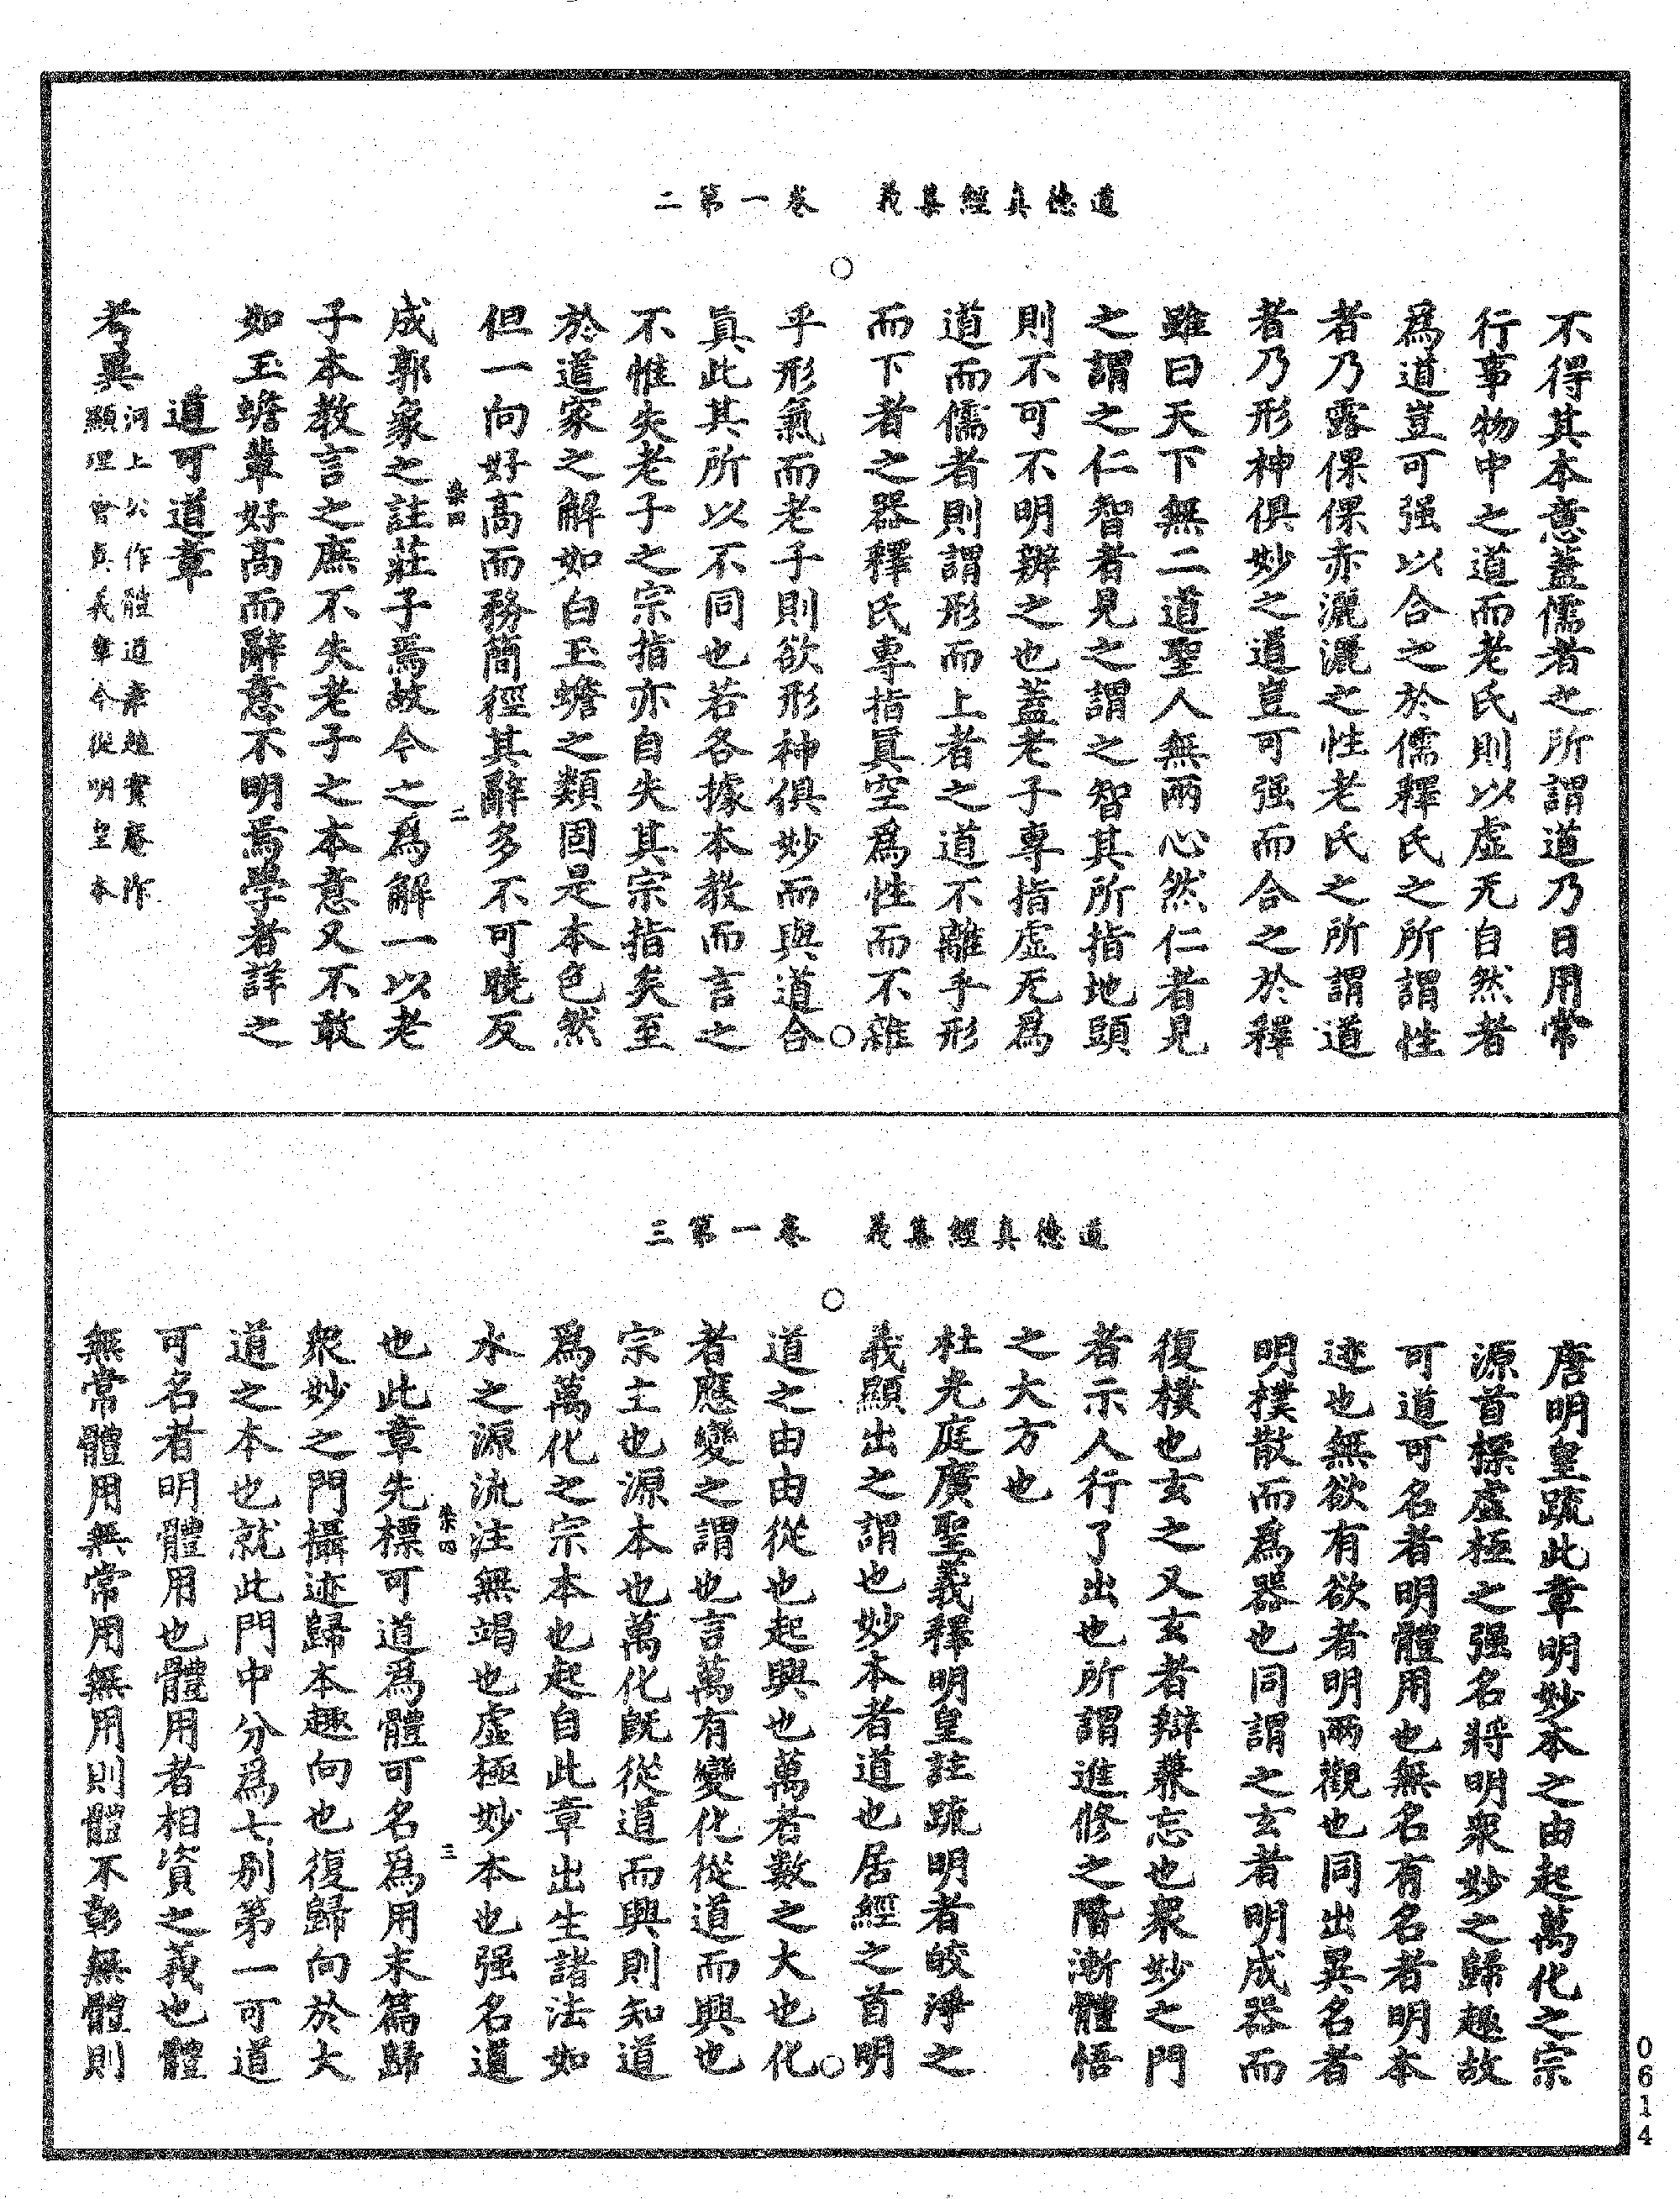 道德真經集義　卷一第二
不得其本意蓋儒者之所謂道乃日用常
行事物中之道而老氏則以虛无自然者
爲道豈可强以合之於儒釋氏之所謂性
者乃露倮倮赤灑灑之性老氏之所謂道
者乃形神俱妙之道豈可强而合之於釋
雖曰天下無二道聖人無兩心然仁者見
之謂之仁智者見之謂之智其所指地頭
則不可不明辨之也蓋老子專指虛无爲
道而儒者則謂形而上者之道不離乎形
而下者之器釋氏專指眞空爲性而不雜
乎形氣而老子則欲形神俱妙而與道合
眞此其所以不同也若各據本教而言之
不惟失老子之宗指亦自失其宗指矣至
於道家之解如白玉蟾之類固是本色然
但一向好高而務簡徑其辭多不可曉反
二
成郭象之註莊子焉故今之爲解一以老
子本教言之庶不失老子之本意又不敢
如玉蟾輩好高而辭意不明焉學者詳之
道可道章
考異河上公作體道章趙實庵作
顯理會真義章今從明皇本
道德真經集義　卷一第三
唐明皇疏此章明妙本之由起萬化之宗
源首標虛極之强名將明衆妙之歸趣故
可道可名者明體用也無名有名者明本
迹也無欲有欲者明兩觀也同出異名者
明樸散而爲器也同謂之玄者明成器而
復樸也玄之又玄者辯兼忘也衆妙之門
者示人行了出也所謂進修之階漸體悟
之大方也
杜光庭廣聖義釋明皇註疏明者皎淨之
義顯出之謂也妙本者道也居經之首明
道之由由從也起興也萬者數之大也化
者應變之謂也言萬有變化從道而興也
宗主也源本也萬化旣從道而興則知道
爲萬化之宗本也起自此章出生諸法如
水之源流注無竭也虛極妙本也强名道
三
也此章先標可道爲體可名爲用末篇歸
衆妙之門攝迹歸本趣向也復歸向於大
道之本也就此門中分爲七別第一可道
可名者明體用也體用者相資之義也體
無常體用無常用無用則體不彰無體則
0614